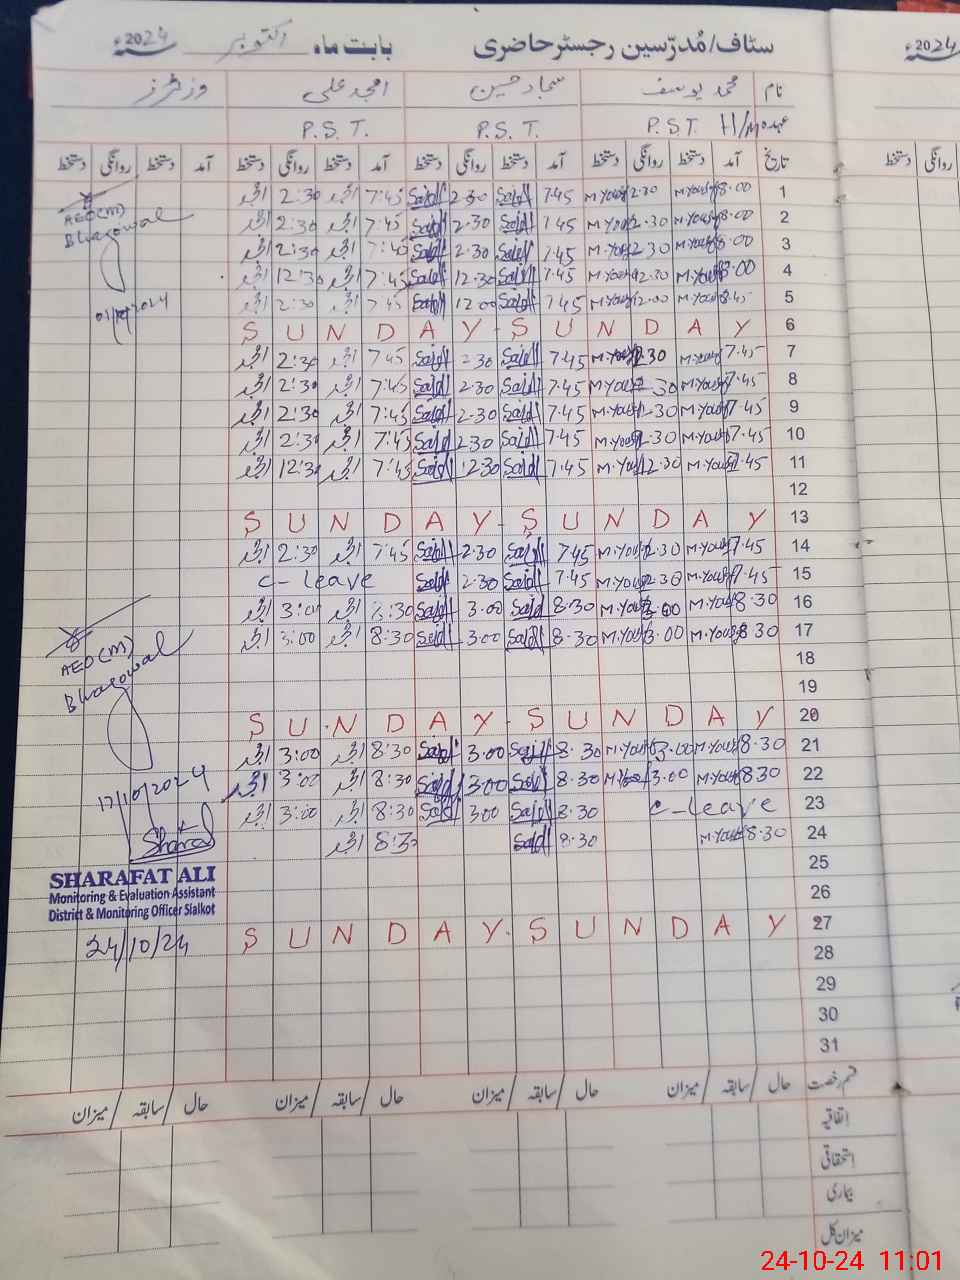 سٹاف/مُدرّسین رجسٹر حاضری بابت ماہ اکتوبر سنہ 2024ء
نام محمد یوسف سجاد حسین امجد علی وزیٹرز
عہدہ H/M P.S.T P.S.T. P.S.T.
تاریخ آمد دستخط روانگی دستخط آمد دستخط روانگی دستخط آمد دستخط روانگی دستخط آمد دستخط روانگی دستخط
1 8:00 M.Yousf 2.30 M.Yousf 7.45 Sajd 2.30 Sajd 7:45 امجد 2:30 امجد
2 8:00 M.Yousf 2.30 M.Yousf 7.45 Sajd 2.30 Sajd 7:45 امجد 2:30 امجد
3 8:00 M.Yousf 2.30 M.Yousf 7.45 Sajd 2.30 Sajd 7:45 امجد 2:30 امجد
4 8:00 M.Yousf 12.30 M.Yousf 7.45 Sajd 12.30 Sajd 7:45 امجد 12:30 امجد
5 8.45 M.Yousf 12.00 M.Yousf 7.45 Sajd 12.00 Sajd 7:45 امجد 2:30 امجد
S U N D A Y - S U N D A Y 6
7 7.45 M.Yousf 2.30 M.Yousf 7.45 Sajd 2.30 Sajd 7:45 امجد 2:30 امجد
8 7.45 M.Yousf 2.30 M.Yousf 7.45 Sajd 2.30 Sajd 7:45 امجد 2:30 امجد
9 7.45 M.Yousf 2.30 M.Yousf 7.45 Sajd 2.30 Sajd 7:45 امجد 2:30 امجد
10 7.45 M.Yousf 2.30 M.Yousf 7.45 Sajd 2.30 Sajd 7:45 امجد 2:30 امجد
11 7.45 M.Yousf 12.30 M.Yousf 7.45 Sajd 12.30 Sajd 7:45 امجد 12:30 امجد
12
S U N D A Y - S U N D A Y 13
14 7.45 M.Yousf 2.30 M.Yousf 7.45 Sajd 2.30 Sajd 7:45 امجد 2:30 امجد
15 7.45 M.Yousf 2.30 M.Yousf 7.45 Sajd 2.30 Sajd C-Leave
16 8.30 M.Yousf 3.00 M.Yousf 8.30 Sajd 3.00 Sajd 8:30 امجد 3:00 امجد
17 8.30 M.Yousf 3.00 M.Yousf 8.30 Sajd 3.00 Sajd 8:30 امجد 3:00 امجد
18
19
S U N D A Y - S U N D A Y 20
21 8.30 M.Yousf 3.00 M.Yousf 8.30 Sajd 3.00 Sajd 8:30 امجد 3:00 امجد
22 8.30 M.Yousf 3.00 M.Yousf 8.30 Sajd 3.00 Sajd 8:30 امجد 3:00 امجد
23 C-Leave 8.30 Sajd 3.00 Sajd 8:30 امجد 3:00 امجد
24 8.30 M.Yousf 8.30 Sajd 8:30 امجد
25
26
S U N D A Y - S U N D A Y 27
28
29
30
31
AEO(M)
Bhagowal
AEO(M)
Bhagowal
17/10/2024
Sharafat
SHARAFAT ALI
Monitoring & Evaluation Assistant
District & Monitoring Officer Sialkot
24/10/24
قسم رخصت حال / سابقہ / میزان حال / سابقہ / میزان حال / سابقہ / میزان حال / سابقہ / میزان
اتفاقیہ
استحقاقی
بیماری
میزان کل
سنہ 2024ء
روانگی دستخط
24-10-24 11:01